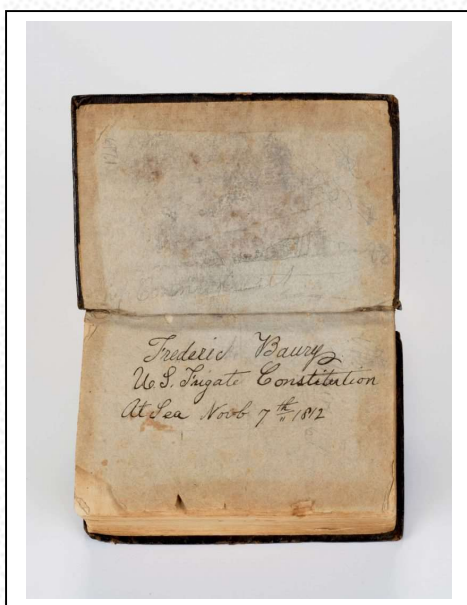 Frederic Baury
U.S. Frigate Constitution
At Sea Novb 7th 1812